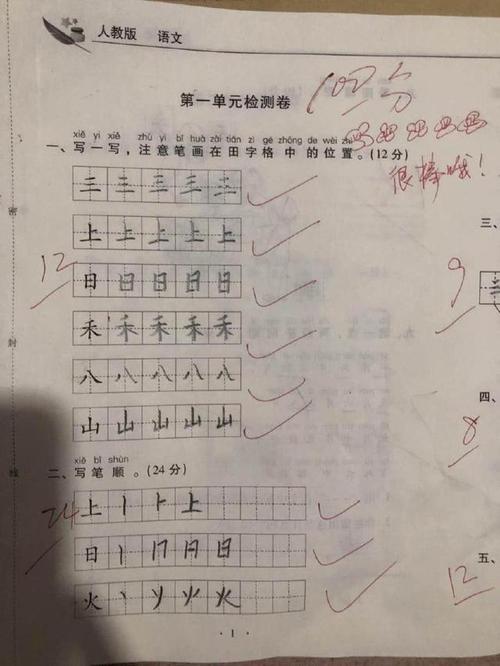 人教版 语文
第一单元检测卷 100分
xiě yi xiě zhù yì bǐ huà zài tián zì gé zhōng de wèi zhì
一、写一写，注意笔画在田字格中的位置。(12分)
很棒哦！
三 三 三 三 三
上 上 上 上 上
12
日 日 日 日 日
禾 禾 禾 禾 禾
八 八 八 八 八
山 山 山 山 山
xiě bǐ shùn
二、写笔顺。(24分)
24
上 丨 ⺊ 上
日 丨 冂 日 日
火 丶 丷 火 火
·1·
密
封
线
三、
9
四、
8
五、
12